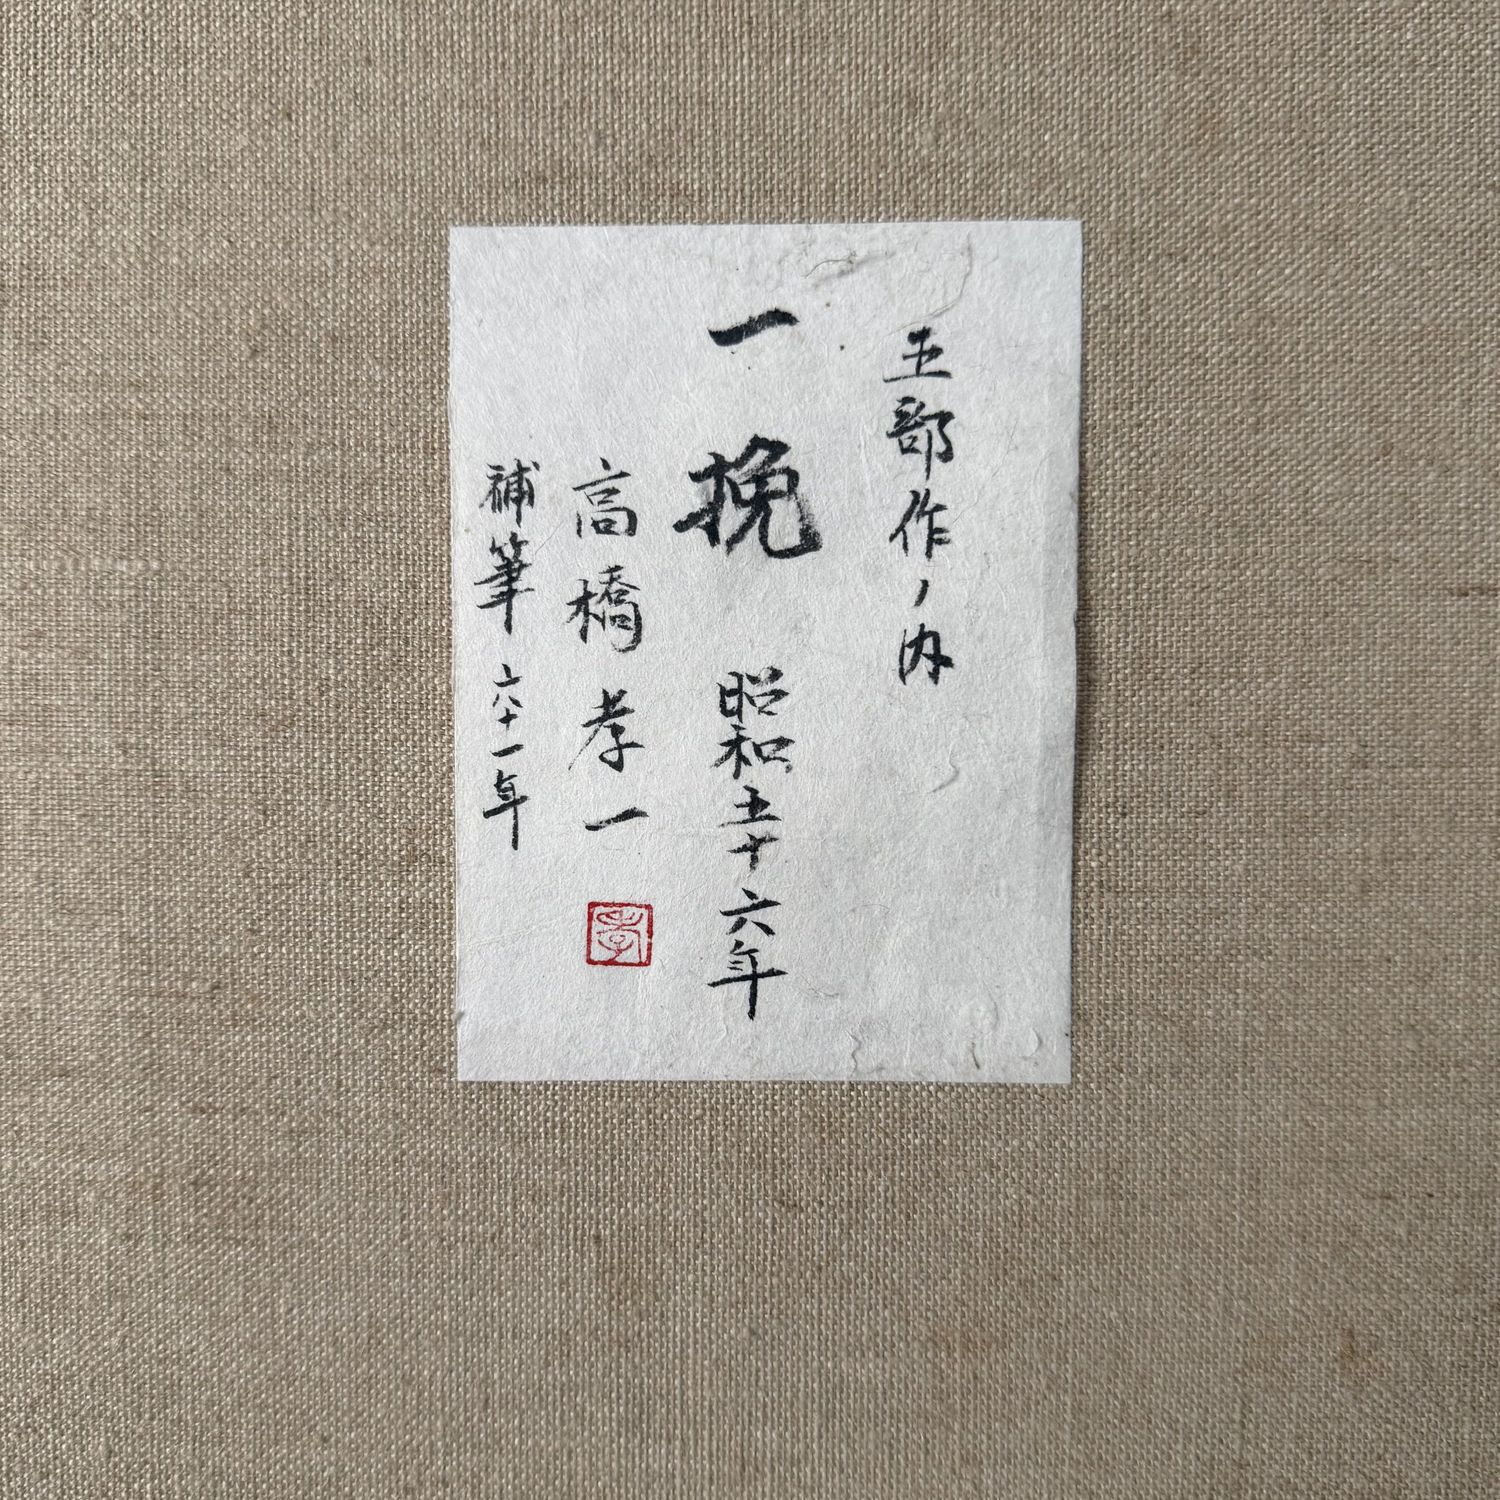 五部作ノ内
一挽 昭和五十六年
高橋孝一
補筆 六十一年
孝